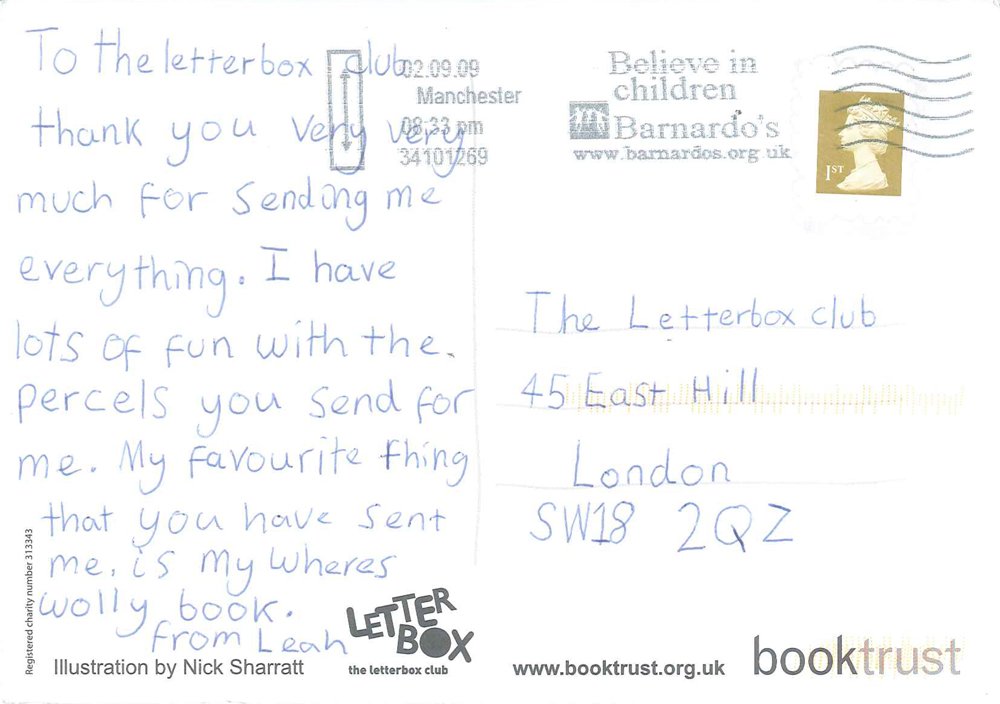 To the letterbox club
thank you very very
much for sending me
everything. I have
lots of fun with the.
percels you send for
me. My favourite thing
that you have sent
me. is my wheres
wolly book.
from Leah
02.09.09
Manchester
08:33 pm
34101269
Believe in
children
Barnardo's
www.barnardos.org.uk
1ST
The Letterbox club
45 East Hill
London
SW18 2QZ
Registered charity number 313343
Illustration by Nick Sharratt
LETTER
BOX
the letterbox club
www.booktrust.org.uk
booktrust